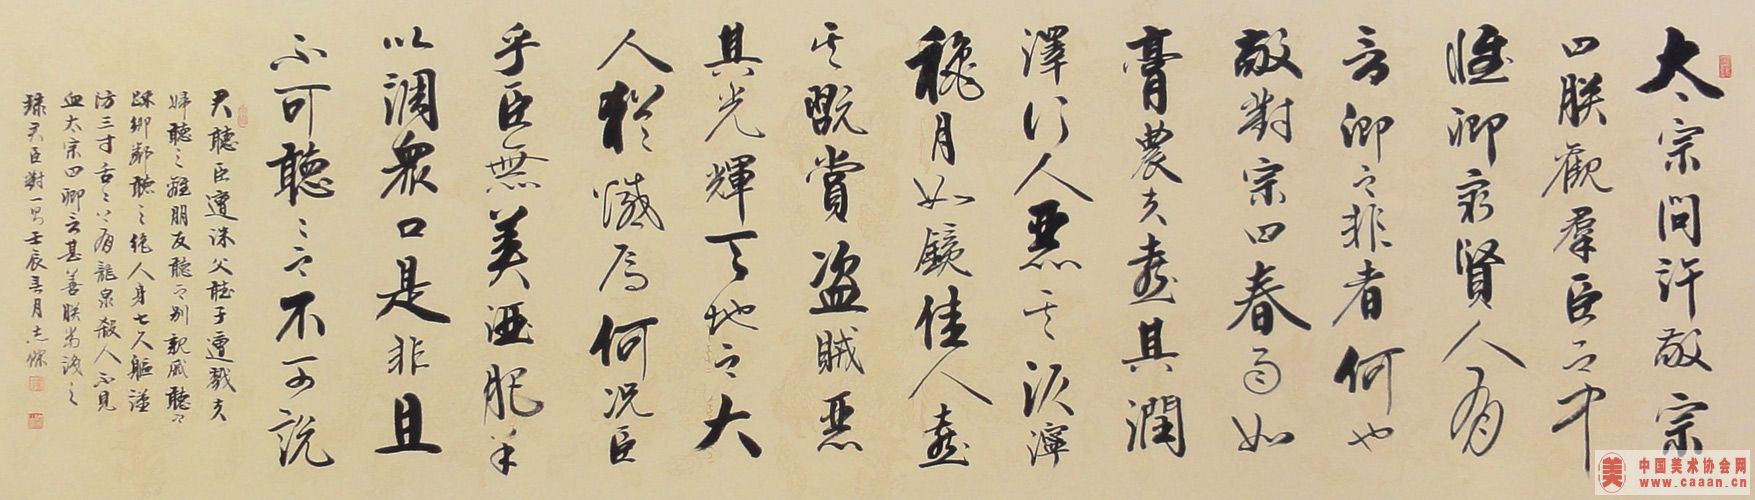 太宗問許敬宗
曰朕觀羣臣之中
惟卿最賢人有
言卿之非者何也
敬對宗曰春雨如
膏農夫喜其潤
澤行人惡其泥濘
穐月如鏡佳人喜
其翫賞盜賊惡
其光輝天地之大
人猶憾焉何況臣
乎臣無美酒肥羊
以調衆口是非且
不可聽〻之不可說
君聽臣遭誅父聽子遭戮夫
婦聽之離朋友聽之別親戚聽之
踈鄉鄰聽之絶人身七尺軀謹
防三寸舌〻上有龍泉殺人不見
血太宗曰卿言甚善朕當識之
錄君臣對一則壬辰月志
中国美术协会网
www.caaan.cn